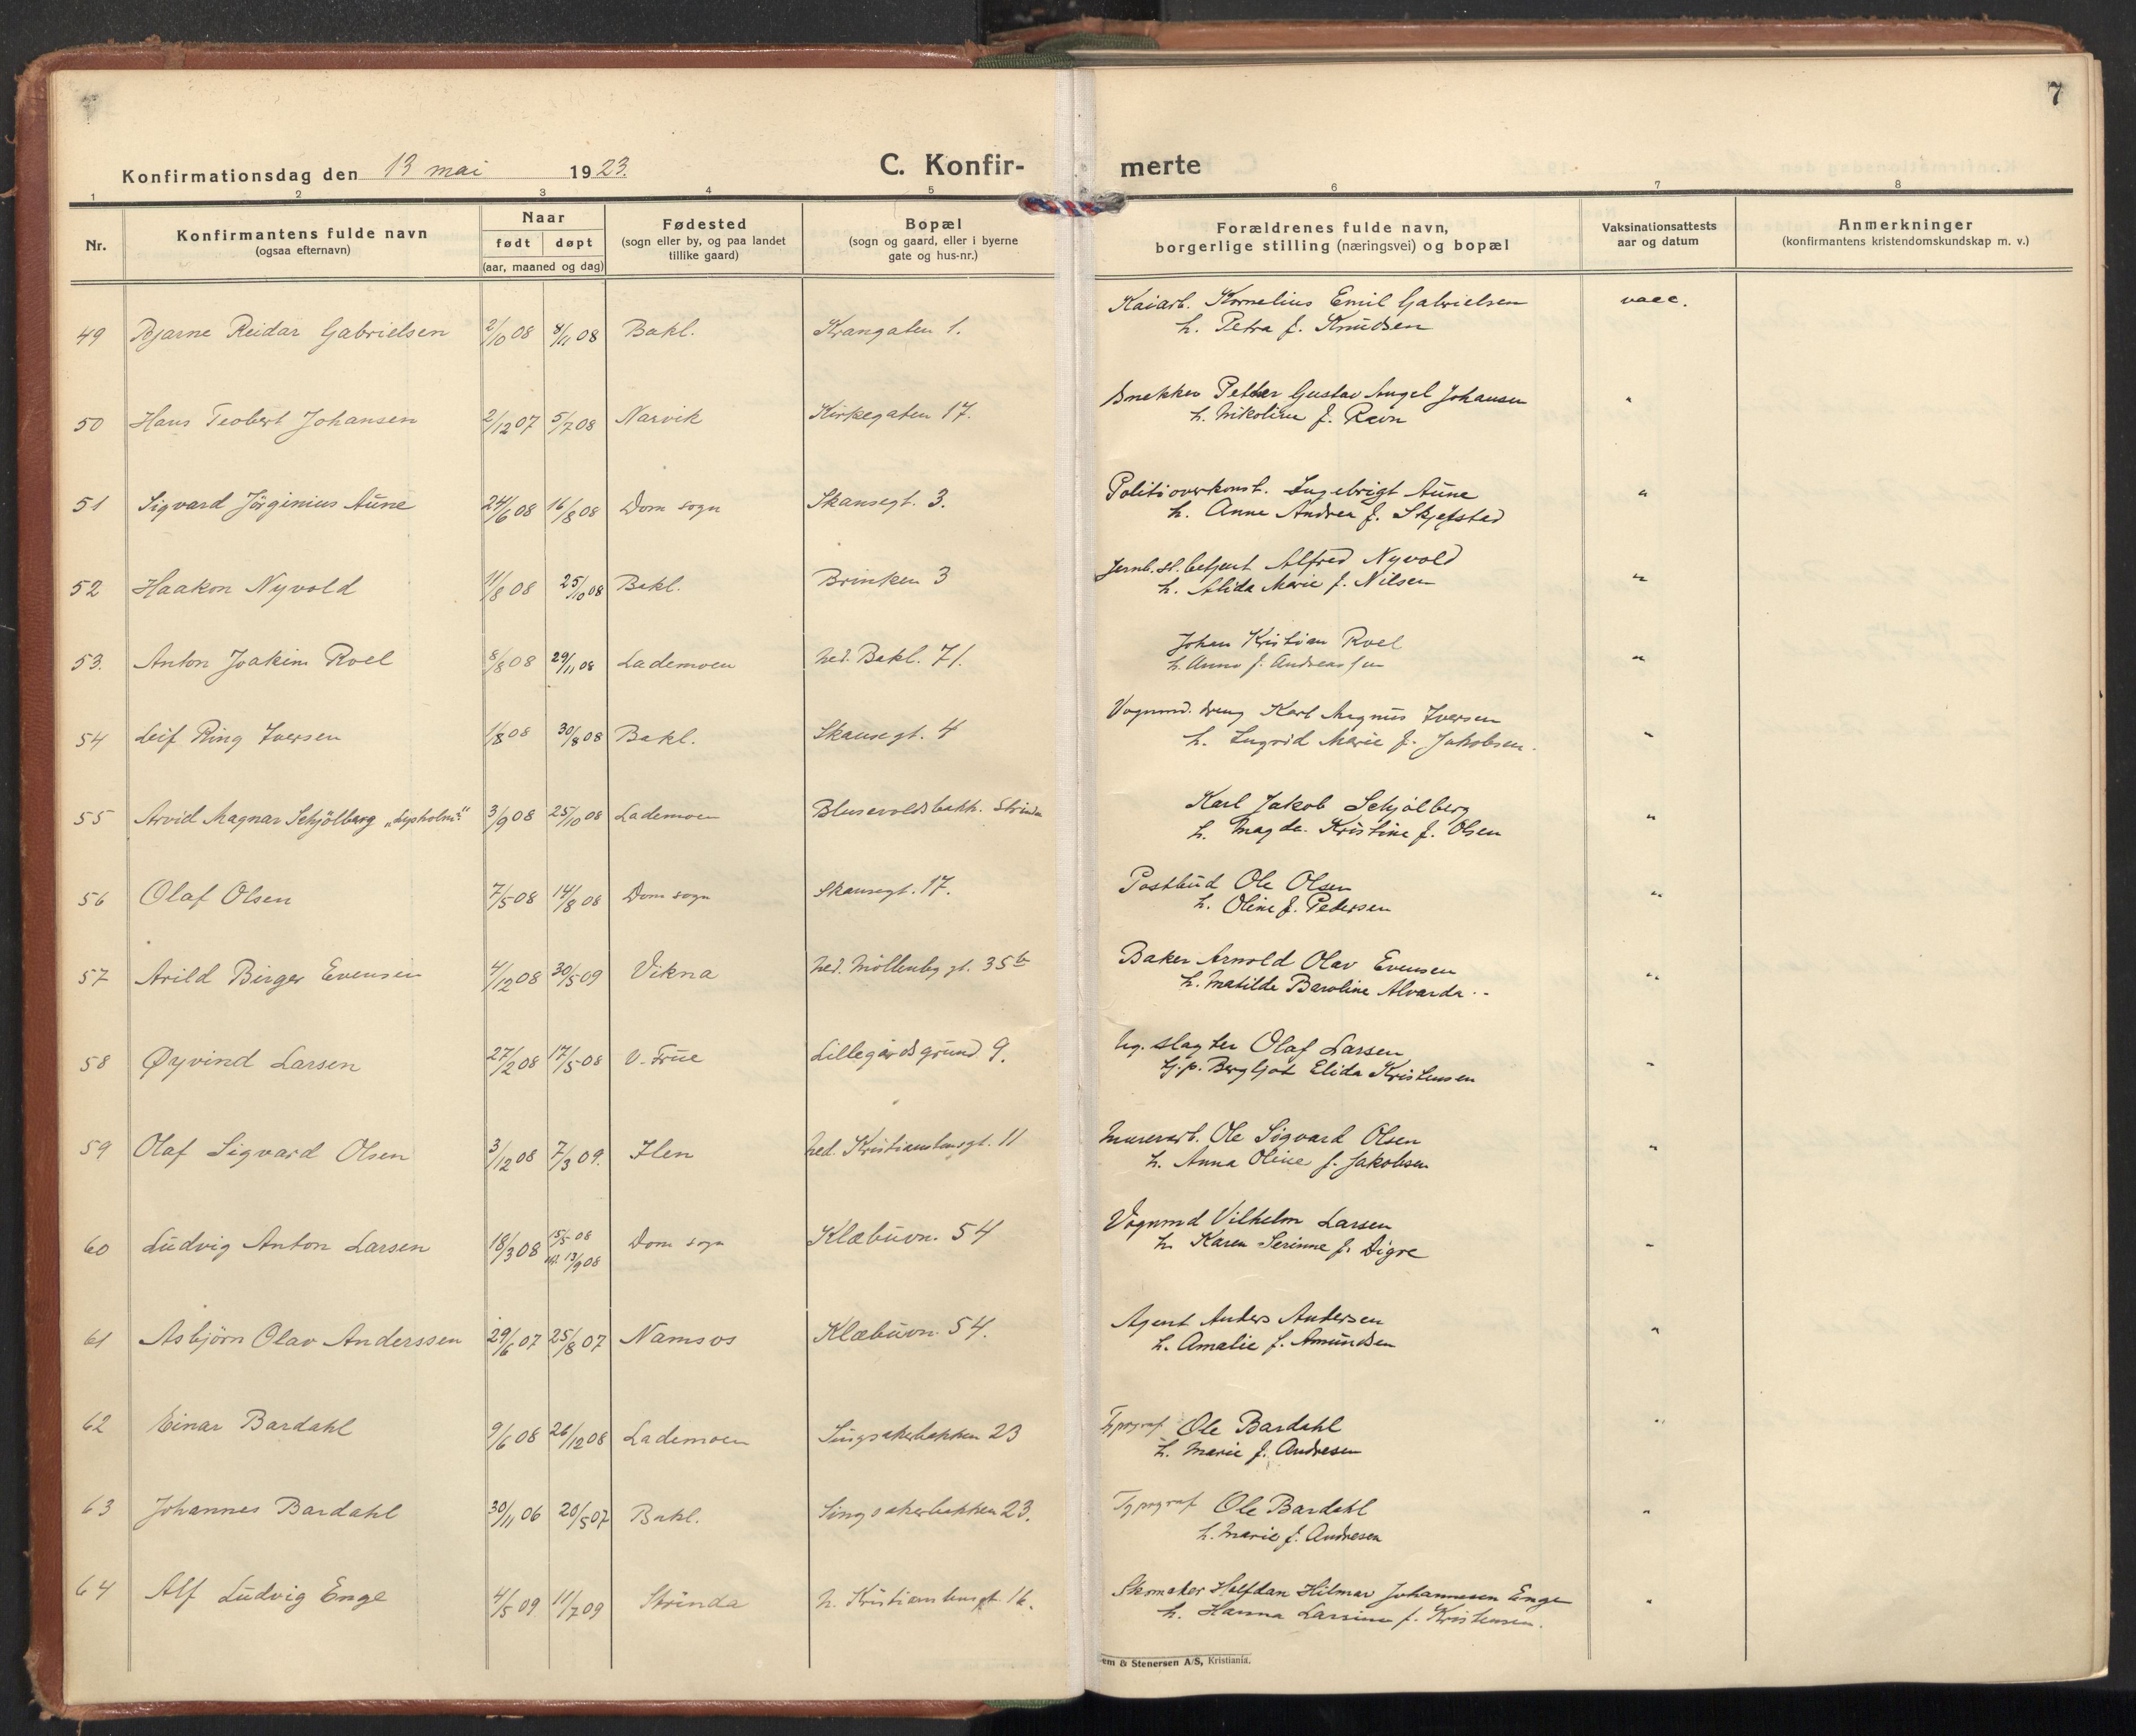 7
Konfirmationsdag den 13 mai 1923.
C. Konfir-
merte
1 2 3 4 5 6 7 8
Nr.
Konfirmantens fulde navn
(ogsaa efternavn)
Naar
født døpt
(aar, maaned og dag)
Fødested
(sogn eller by, og paa landet
tillike gaard)
Bopæl
(sogn og gaard, eller i byerne
gate og hus-nr.)
Forældrenes fulde navn,
borgerlige stilling (næringsvei) og bopæl
Vaksinationsattests
aar og datum
Anmerkninger
(konfirmantens kristendomskundskap m. v.)
49 Bjarne Reidar Gabrielsen 2/10 08 8/11 08 Bakl. Krangaten 1.
Kaiarb. Kornelius Emil Gabrielsen vacc.
h. Petra f. Knudsen
50 Hans Teobert Johansen 2/12 07 5/7 08 Narvik Kirkegaten 17.
Snekker Petter Gustav Angel Johansen "
h. Nikoline f. Ravn
51 Sigvard Jörginius Aune 24/6 08 16/8 08 Dom sogn Skansegt. 3.
Politioverkonst. Ingebrigt Aune "
h. Anne Andrea f. Skjefstad
52 Haakon Nyvold 11/8 08 25/10 08 Bakl. Brinken 3
Jernb. st. betjent Alfred Nyvold "
h. Alida Marie f. Nilsen
53. Anton Joakim Roel 8/8 08 29/11 08 Lademoen ned. Bakl. 71.
Johan Kristian Roel "
h. Anna f. Andreassen
54 Leif Ring Iversen 1/8 08 30/8 08 Bakl. Skansegt. 4
Vognmd. dreng Karl Magnus Iversen "
h. Ingrid Marie f. Jakobsen.
55 Arvid Magnar Schjölberg „Lysholm“ 3/9 08 25/10 08 Lademoen Blusevoldsbakk. Strinda
Karl Jakob Schjølberg "
h. Magda Kristine f. Olsen
56 Olaf Olsen 7/5 08 14/8 08 Dom sogn Skansegt. 17.
Postbud Ole Olsen "
h. Oline f. Pedersen
57 Arild Birger Evensen 4/12 08 30/5 09 Vikna ned. Möllenbg gt. 35b
Baker Arnold Olav Evensen "
h. Matilde Baroline Alvarda
58 Øyvind Larsen 27/2 08 17/5 08 V. Frue Lillegårdsgrund 9.
Ug. slagter Olaf Larsen "
Pj. p. Bergljot Elida Kristensen
59 Olaf Sigvard Olsen 3/12 08 7/3 09. Ilen ned. Kristianstensgt. 11
Murerarb. Ole Sigvard Olsen "
h. Anna Oline f. Jakobsen
60 Ludvig Anton Larsen 18/3 08 15/5 08 Dom sogn Klæbuvn. 54
13/9 08
Vognmd Vilhelm Larsen "
h. Karen Serinne f. Digre
61 Asbjörn Olav Anderssen 29/6 07 25/8 07 Namsos Klæbuvn. 54.
Agent Anders Andersen "
h. Amalie f. Amundsen
62 Einar Bardahl 9/6 08 26/12 08 Lademoen Singsakerbakken 23
Typograf Ole Bardahl "
h. Marie f. Andresen
63 Johannes Bardahl 30/11 06 20/5 07 Bakl. Singsakerbakken 23.
Typograf Ole Bardahl "
h. Marie f. Andresen
64 Alf Ludvig Enge 4/5 09 11/7 09 Strinda n. Kristianstensgt. 16.
Skomaker Halfdan Hilmar Johannesen Enge "
h. Hanna Larsine f. Kristensen.
em & Stenersen A/S, Kristiania.